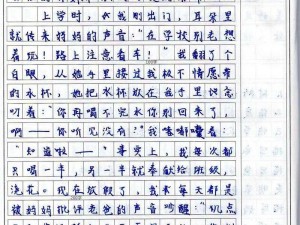 上学时，我刚出门，耳朵里
就传来妈妈的声音："在学校别老想
着玩！路上注意看车！"我翻了个
白眼，从她手里接过我极不情愿带
的水杯，他把水杯放在我手里还念
叨着："你再喝不完水你别回来了，
啊——你听见没有！"我嘟囔着：
"知道啦——"事实上，我每次都
只喝一半，另一半就奉献给班级，
浇花。现在放假了，我每天都是
被妈妈批评老爸的声音吵醒："几点